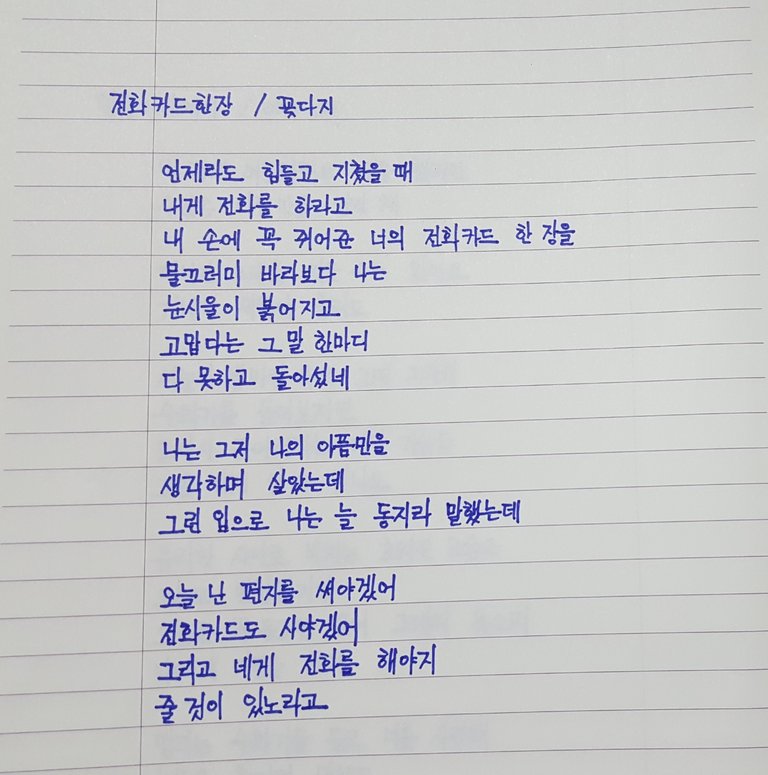 전화카드한장 / 꽃다지
언제라도 힘들고 지쳤을 때
내게 전화를 하라고
내 손에 꼭 쥐어준 너의 전화카드 한 장을
물끄러미 바라보다 나는
눈시울이 붉어지고
고맙다는 그 말 한마디
다 못하고 돌아섰네
나는 그저 나의 아픔만을
생각하며 살았는데
그런 입으로 나는 늘 동지라 말했는데
오늘 난 편지를 써야겠어
전화카드도 사야겠어
그리고 네게 전화를 해야지
줄 것이 있노라고